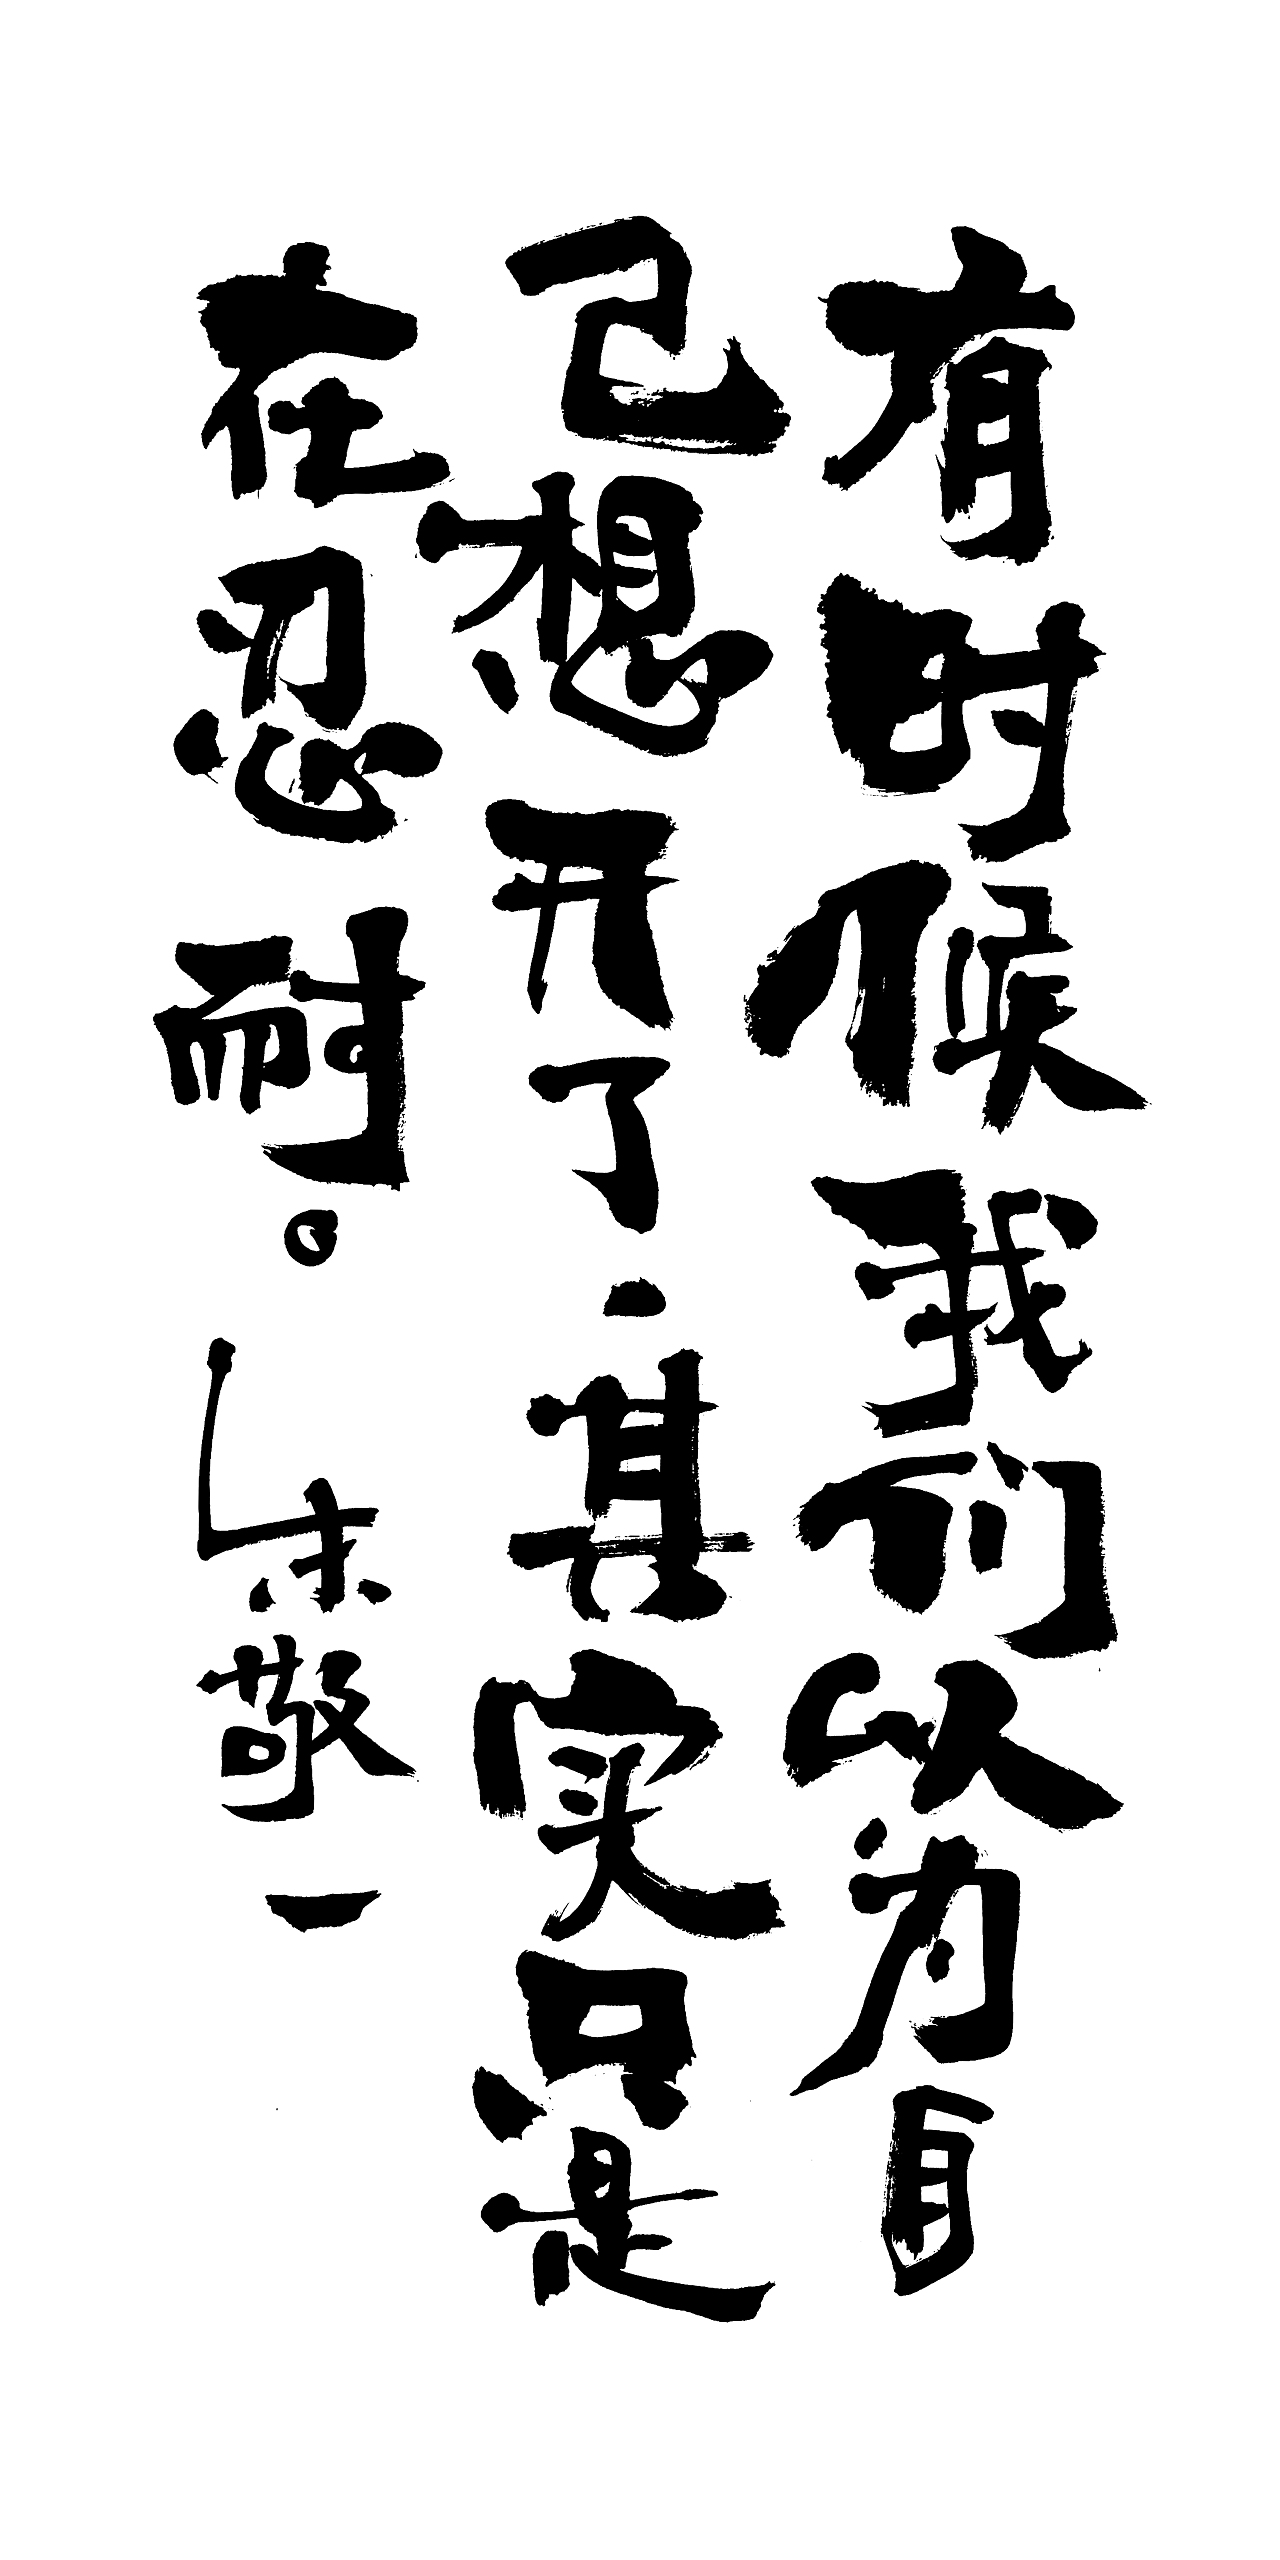 有时候我们以为自
己想开了，其实只是
在忍耐。——朱敬一